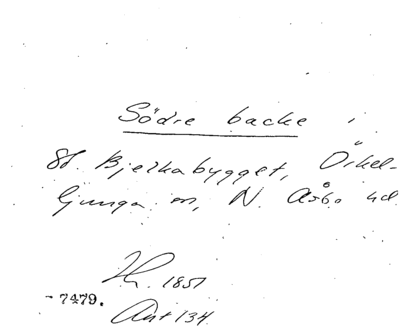 Södre backe i
St. Bjerkabygget, Örkel-
ljunga sn, N. Åsbo hd.
1851
- 7479.
Ant 134